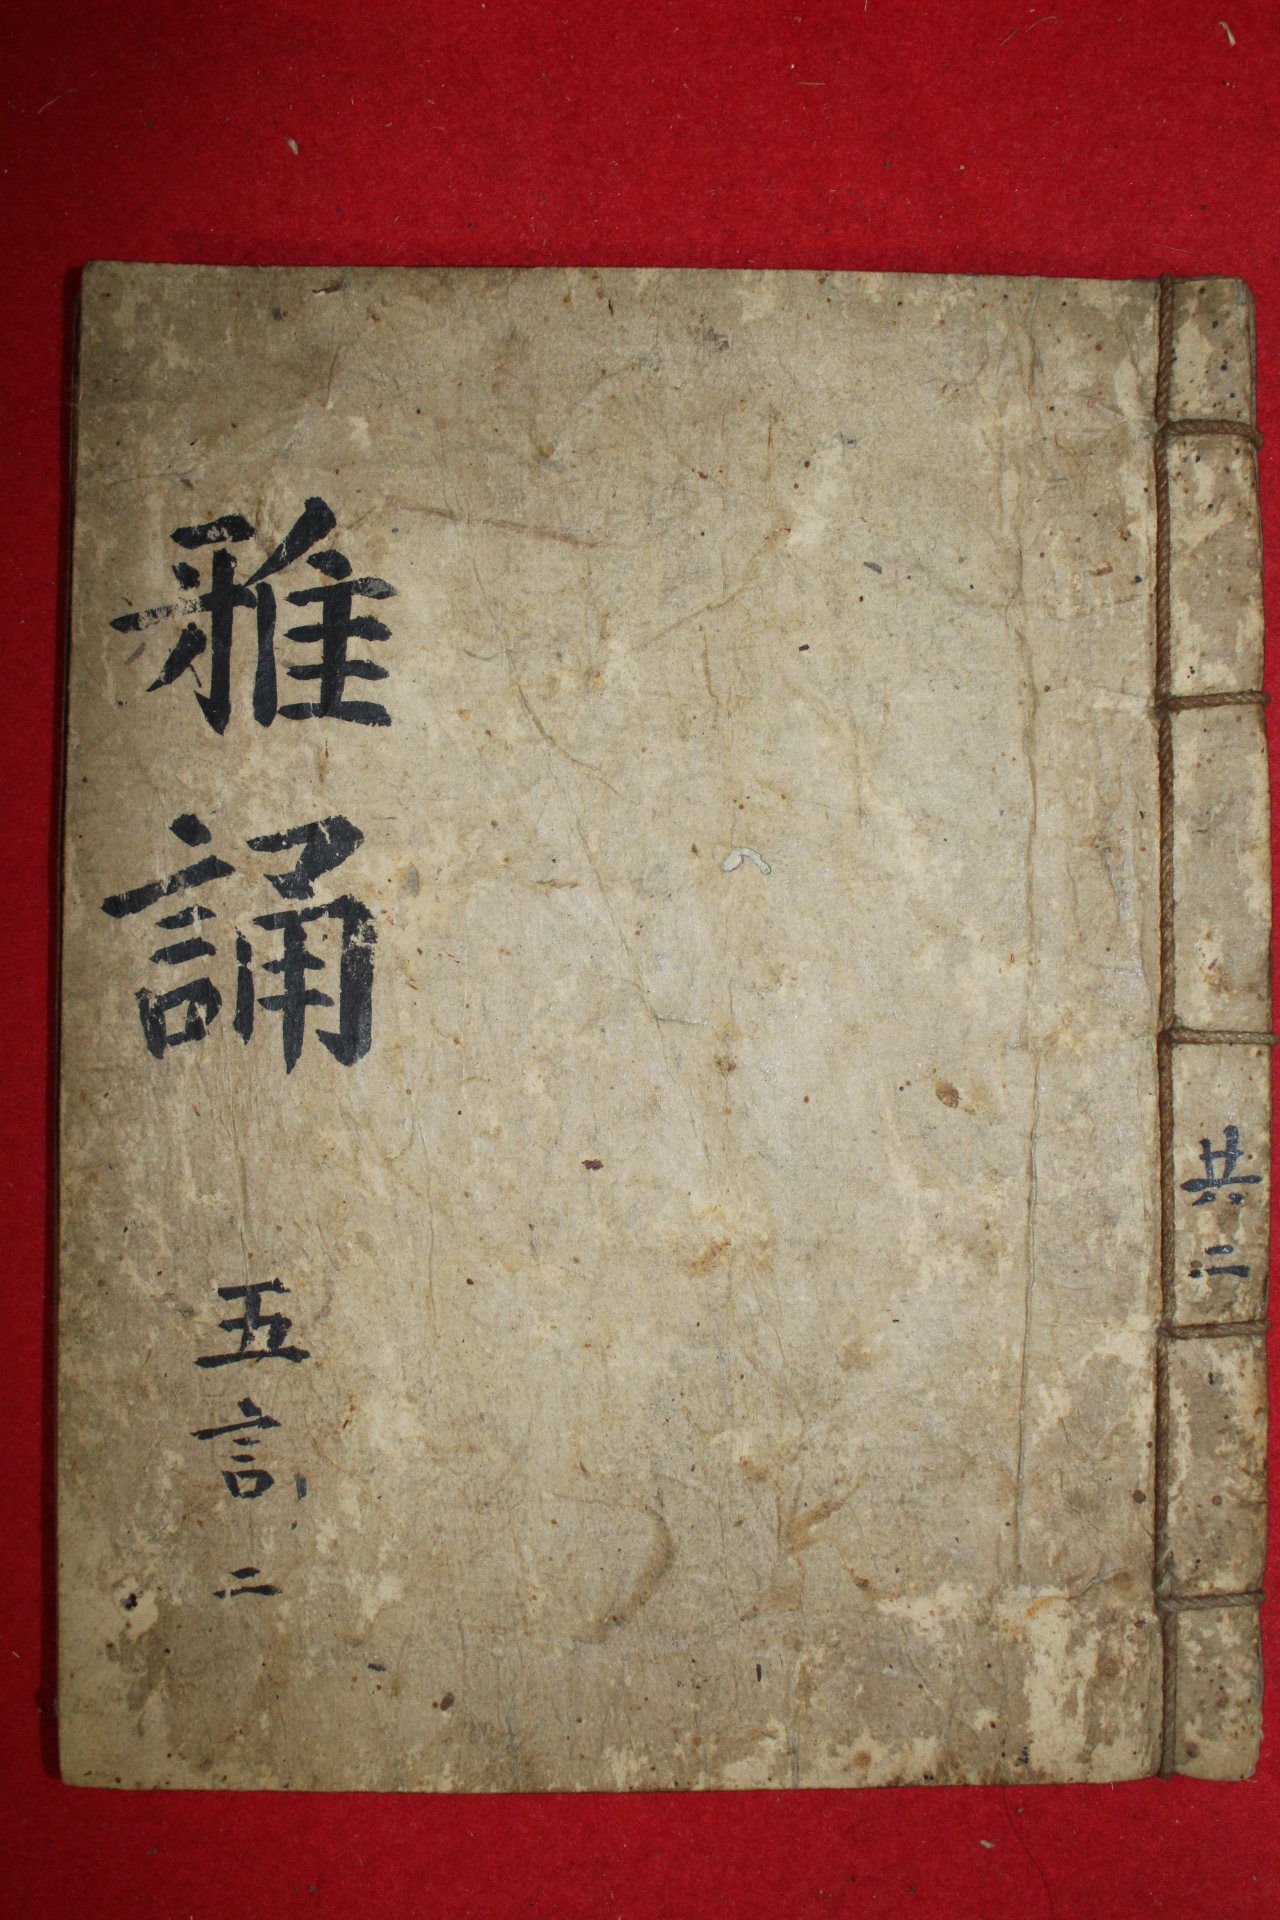 共二
雅誦
五言 二